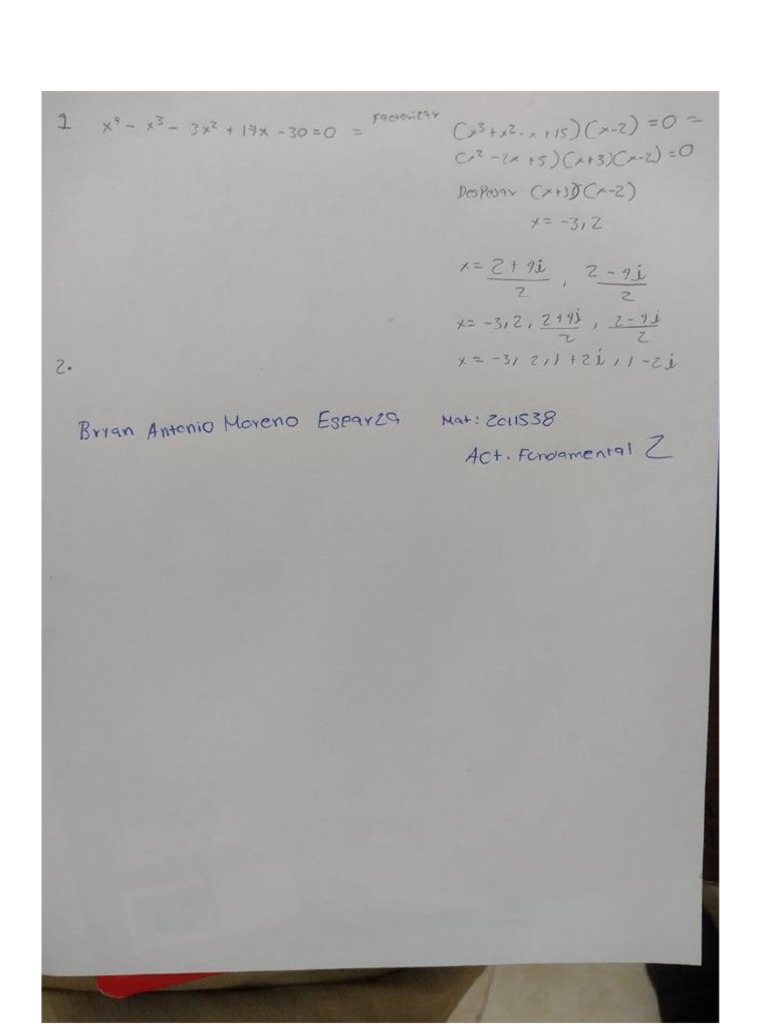 1 x⁴ - x³ - 3x² + 17x - 30 = 0 = Factorizar (x³+x²-x+15)(x-2)=0 =
(x²-2x+5)(x+3)(x-2)=0
Despejar (x+3)(x-2)
x = -3, 2
x = 2+4i/2, 2-4i/2
x = -3, 2, 2+4i/2, 2-4i/2
x = -3, 2, 1+2i, 1-2i
2.
Bryan Antonio Moreno Esparza Mat: 2011538
Act. Fundamental 2